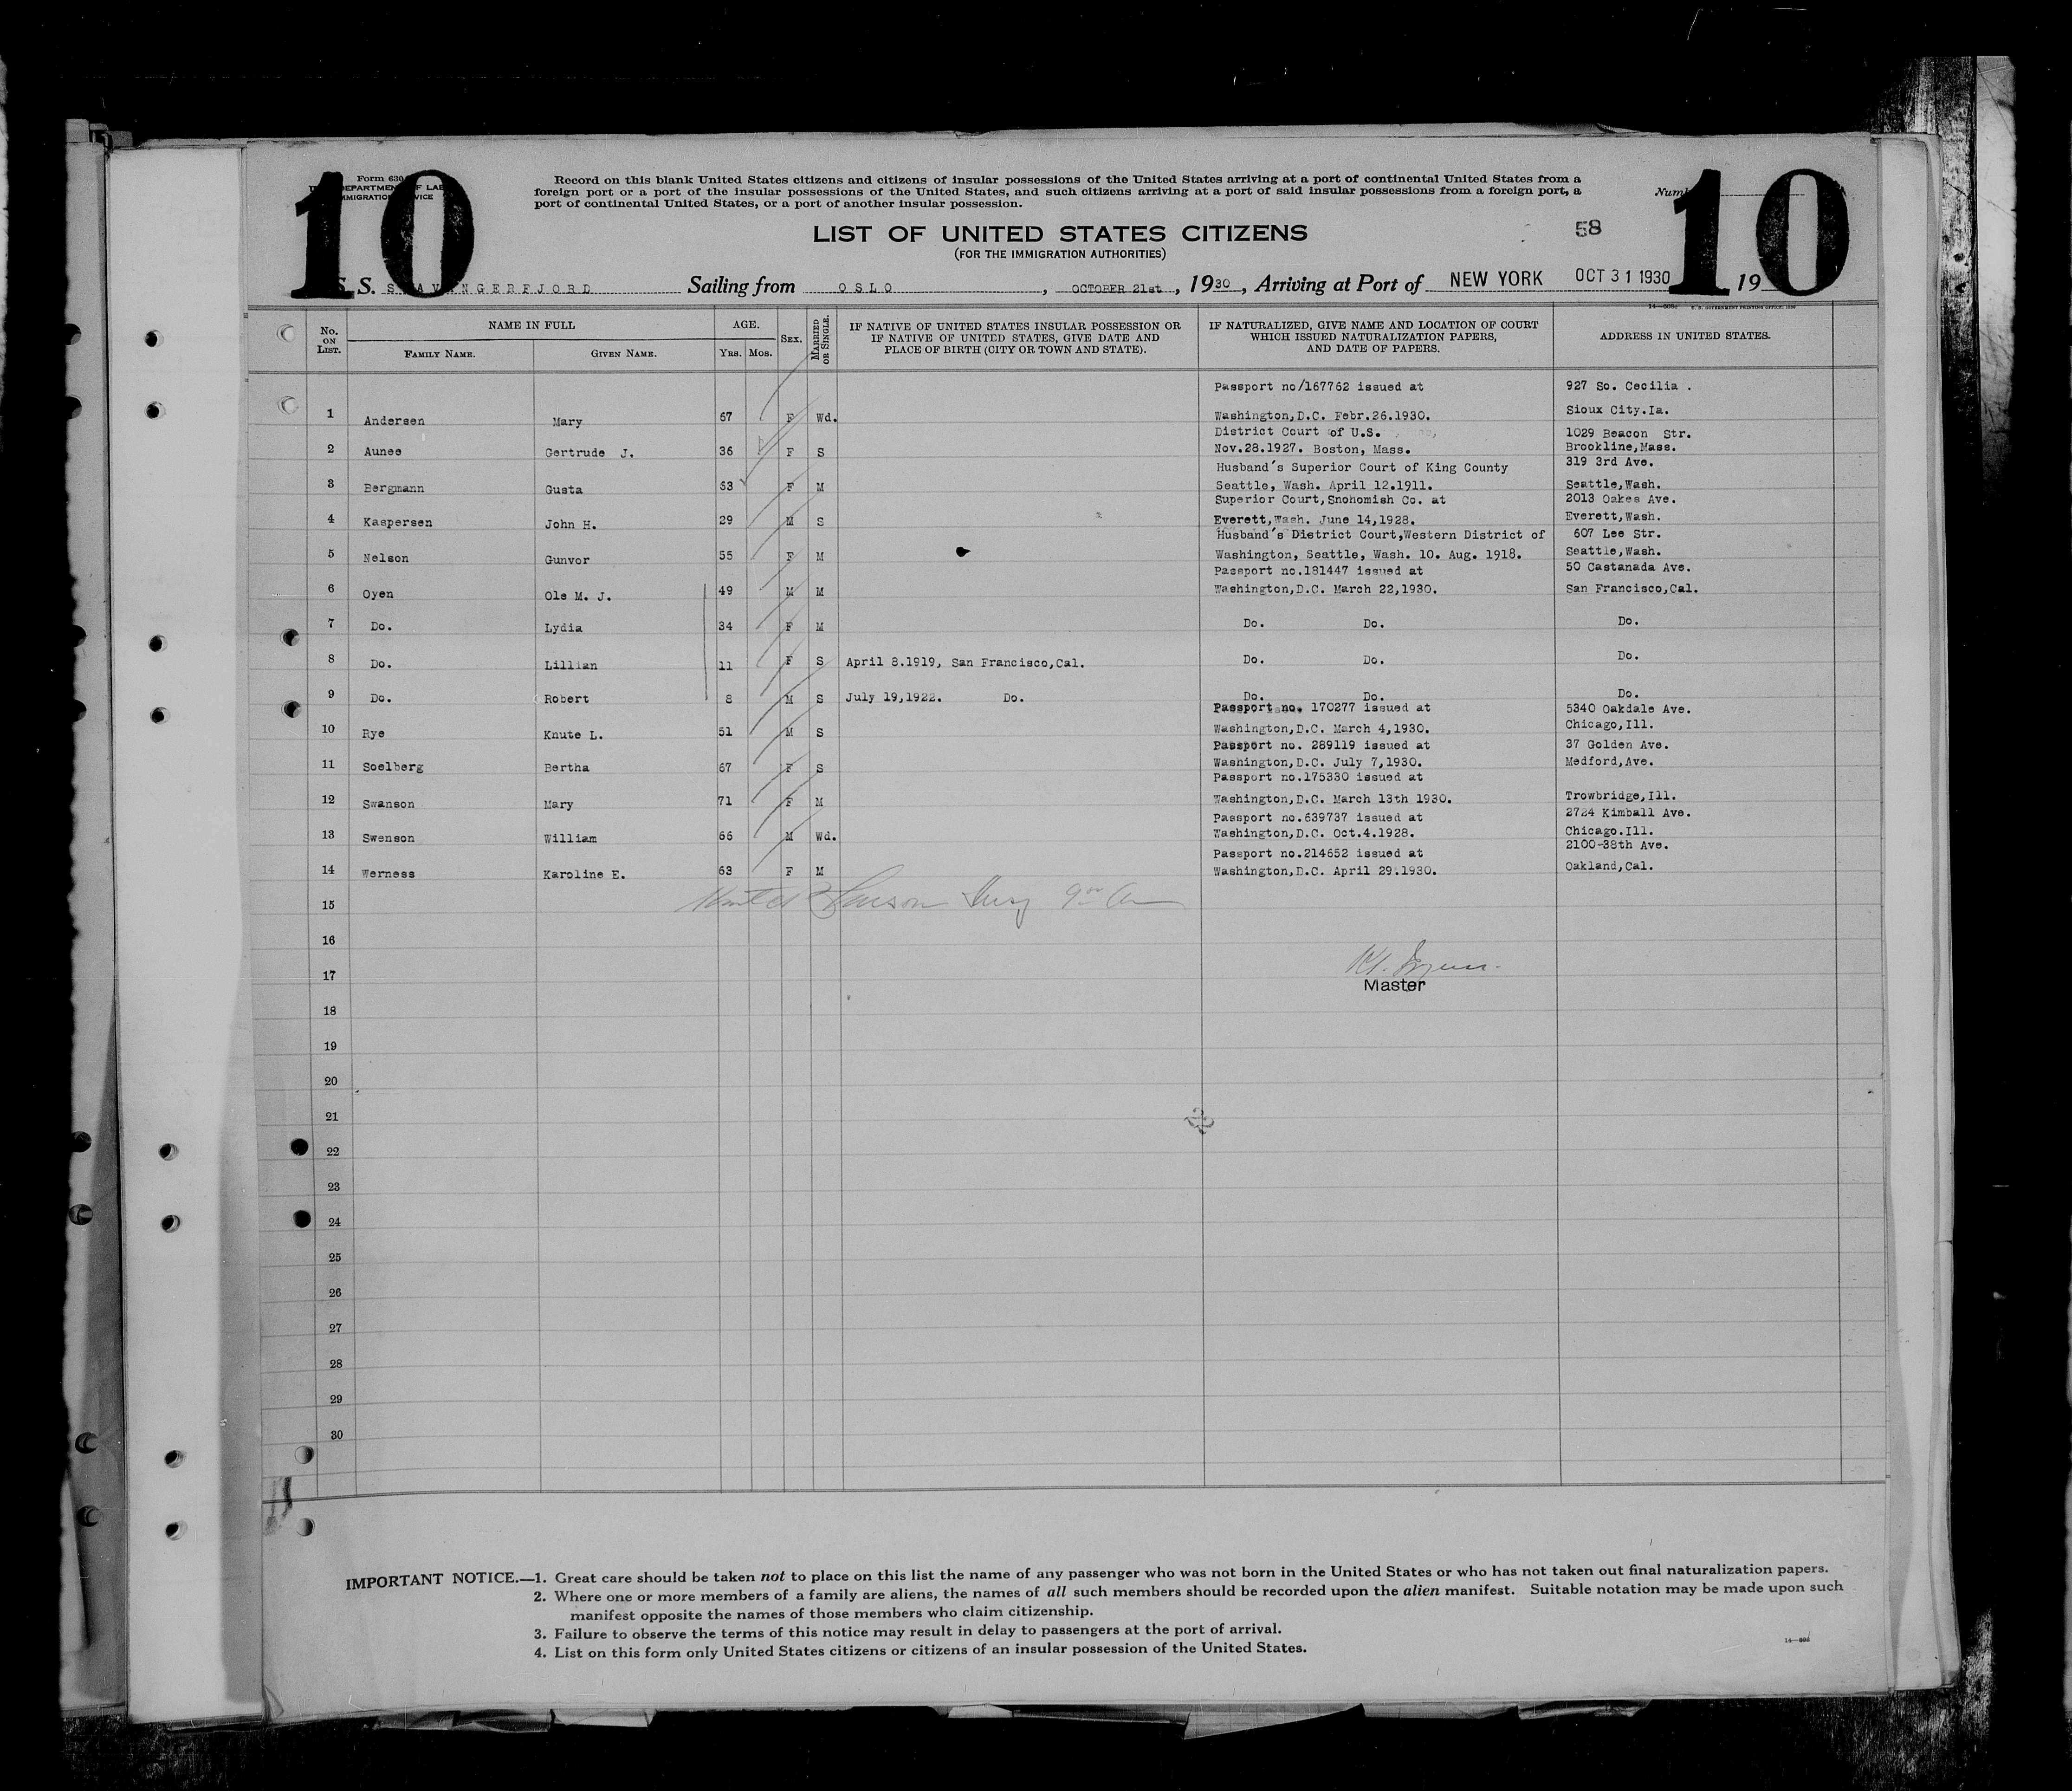 10
Form 630
DEPARTMENT OF LAB
IMMIGRATION VICE
Record on this blank United States citizens and citizens of insular possessions of the United States arriving at a port of continental United States from a
foreign port or a port of the insular possessions of the United States, and such citizens arriving at a port of said insular possessions from a foreign port, a
port of continental United States, or a port of another insular possession.
10
LIST OF UNITED STATES CITIZENS
58
(FOR THE IMMIGRATION AUTHORITIES)
S. S. STAVANGERFJORD Sailing from OSLO, OCTOBER 21st, 1930, Arriving at Port of NEW YORK OCT 31 1930 19
No. ON LIST. NAME IN FULL AGE. SEX. MARRIED OR SINGLE. IF NATIVE OF UNITED STATES INSULAR POSSESSION OR IF NATIVE OF UNITED STATES, GIVE DATE AND PLACE OF BIRTH (CITY OR TOWN AND STATE). IF NATURALIZED, GIVE NAME AND LOCATION OF COURT WHICH ISSUED NATURALIZATION PAPERS, AND DATE OF PAPERS. ADDRESS IN UNITED STATES.
FAMILY NAME. GIVEN NAME. YRS. MOS.
Passport no/167762 issued at 927 So. Cecilia .
1 Andersen Mary 67 F Wd. Washington,D.C. Febr.26.1930. Sioux City.Ia.
District Court of U.S. 1029 Beacon Str.
2 Aunee Gertrude J. 36 F S Nov.28.1927. Boston, Mass. Brookline,Mass.
Husband's Superior Court of King County 319 3rd Ave.
3 Bergmann Gusta 53 F M Seattle, Wash. April 12.1911. Seattle,Wash.
Superior Court,Snohomish Co. at 2013 Oakes Ave.
4 Kaspersen John H. 29 M S Everett,Wash. June 14,1928. Everett,Wash.
Husband's District Court,Western District of 607 Lee Str.
5 Nelson Gunvor 55 F M Washington, Seattle, Wash. 10. Aug. 1918. Seattle,Wash.
Passport no.181447 issued at 50 Castanada Ave.
6 Oyen Ole M. J. 49 M M Washington,D.C. March 22,1930. San Francisco,Cal.
7 Do. Lydia 34 F M Do. Do. Do.
8 Do. Lillian 11 F S April 8.1919, San Francisco,Cal. Do. Do. Do.
9 Do. Robert 8 M S July 19,1922. Do. Do. Do. Do.
Passport no. 170277 issued at 5340 Oakdale Ave.
10 Rye Knute L. 51 M S Washington,D.C. March 4,1930. Chicago,Ill.
Passport no. 289119 issued at 37 Golden Ave.
11 Soelberg Bertha 67 F S Washington,D.C. July 7,1930. Medford,Ave.
Passport no.175330 issued at
12 Swanson Mary 71 F M Washington,D.C. March 13th 1930. Trowbridge,Ill.
Passport no.639737 issued at 2724 Kimball Ave.
13 Swenson William 66 M Wd. Washington,D.C. Oct.4.1928. Chicago.Ill.
Passport no.214652 issued at 2100-38th Ave.
14 Werness Karoline E. 63 F M Washington,D.C. April 29.1930. Oakland,Cal.
15
16
17
Master
18
19
20
21
22
23
24
25
26
27
28
29
30
IMPORTANT NOTICE.—1. Great care should be taken not to place on this list the name of any passenger who was not born in the United States or who has not taken out final naturalization papers.
2. Where one or more members of a family are aliens, the names of all such members should be recorded upon the alien manifest. Suitable notation may be made upon such
manifest opposite the names of those members who claim citizenship.
3. Failure to observe the terms of this notice may result in delay to passengers at the port of arrival.
4. List on this form only United States citizens or citizens of an insular possession of the United States.